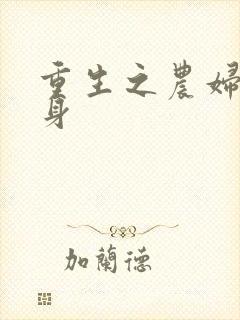 重生之農婦
身
加蘭德